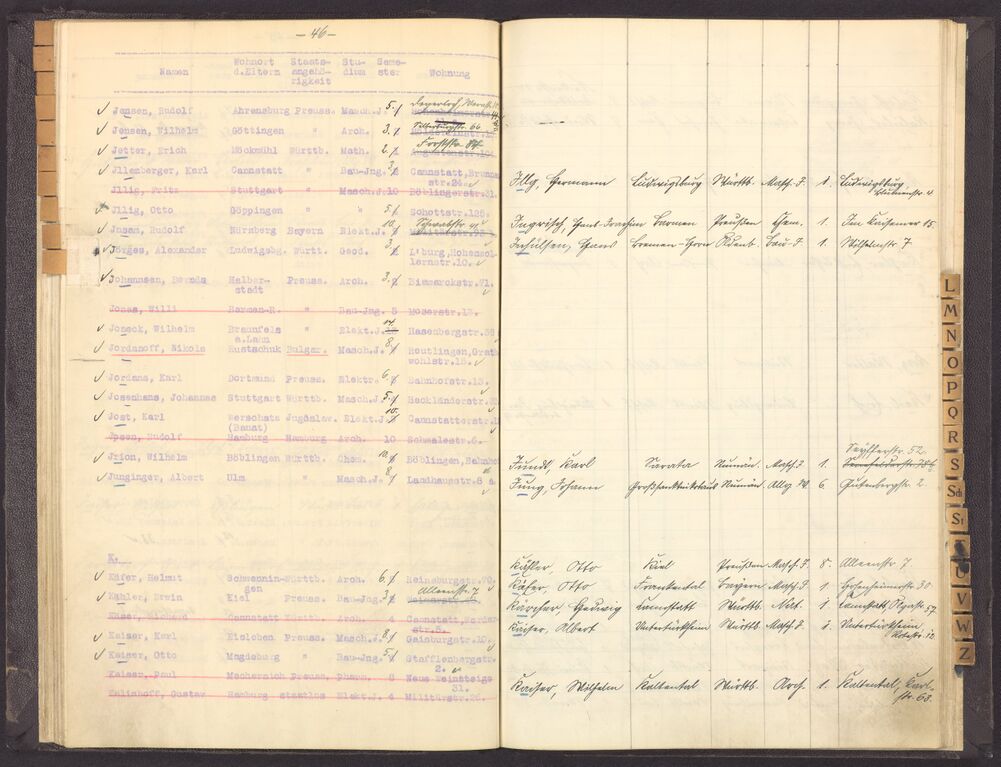 -46-
Namen Wohnort d.Eltern Staats-angehö-rigkeit Stu-dium Seme-ster Wohnung
✓ Jensen, Rudolf Ahrensburg Preuss. Masch.J. 5.
✓ Jensen, Wilhelm Göttingen " Arch. 3. Silberburgstr. 66
✓ Jetter, Erich Möckmühl Württb. Math. 2. Forststr.
✓ Jllenberger, Karl Cannstatt " Bau-Jng. 3. Cannstatt,
str.24.
Jllig, Fritz Stuttgart " Masch.J. 10 Böblingerstr.31.
✓ Jllig, Otto Göppingen " " 5. Schottstr.128.
✓ Jnsam, Rudolf Nürnberg Bayern Elekt.J. 10. Schwabstr.
✓ Jörges, Alexander Ludwigsbg. Württ. Geod. 3. L'burg, Hohenzol-
lernstr.10.
✓ Johannsen, Halber-stadt Preuss. Arch. 3. Bismarckstr.71.
Jonas, Willi Barmen-R. " Bau-Jng. 5 Moserstr.13.
✓ Jonack, Wilhelm Braunfels a.Lahn " Elekt.J. Hasenbergstr.
✓ Jordanoff, Nikola Rustschuk Bulgar. Masch.J. 8. Reutlingen,
wohlstr.15.
✓ Jordans, Karl Dortmund Preuss. Elektr. 6. Bahnhofstr.13.
✓ Josenhans, Johannes Stuttgart Württb. Masch.J. 5. Hackländerstr.
✓ Jost, Karl Werschetz (Banat) Jugoslav. Elekt.J. 10. Cannstatterstr.
Jpsen, Rudolf Hamburg Hamburg Arch. 10 Schmalestr.6.
✓ Jrion, Wilhelm Böblingen Württb. Chem. 10. Böblingen, Bahnhof
✓ Junginger, Albert Ulm " Masch.J. 8. Landhausstr.8
K.
✓ Käfer, Helmut Schwennin-gen Württb. Arch. 6. Reinsburgstr.
✓ Kähler, Erwin Kiel Preuss. Bau-Jng. 3. Alleenstr. 7
Käser, Richard Cannstatt Württb. Arch. 4 Cannstatt,
str.5.
✓ Kaiser, Karl Eisleben Preuss. Masch.J. 8. Gaisburgstr.10.
✓ Kaiser, Otto Magdeburg " Bau-Jng. 5. Stafflenbergstr.
2.
Kaiser, Paul Mechernich Preuss. Pharm. 6 Neue Weinsteige
31.
Kalinhoff, Gustav Hamburg staatlos Elekt.J. 4 Militärstr.26.
Illg, Hermann Ludwigsburg Württb. Masch. J. 1. Ludwigsburg,
Blumenstr. 4
Ingrisch, Hans Joachim Barmen Preußen Chem. 1. Im Kaisemer 15.
Irhülsen, Hans Bremen-Horn Oldenb. Bau-J. 1. Wilhelmstr 7
Seyfferstr. 52.
Jundt, Karl Sarata Rumän. Masch. J. 1.
Jung, Johann Großsanktnikolaus Rumän. Allg. W. 6. Gutenbergstr. 2.
Kähler, Otto Kiel Preußen Masch. J. 8. Alleenstr. 7.
Käser, Otto Frankental Bayern Masch. J. 1. Hohenheimerstr. 30
Kärcher, Hedwig Cannstatt Württb. Nat. 1. Cannstatt, Olgastr. 57.
Kaiser, Albert Untertürkheim Württb. Masch. J. 1. Untertürkheim
Kaiser, Wilhelm Kaltental Württb. Arch. 1. Kaltental, Karl-
str. 63.
L
M
N
O
P
Q
R
S
Sch
St
U
V
W
Z